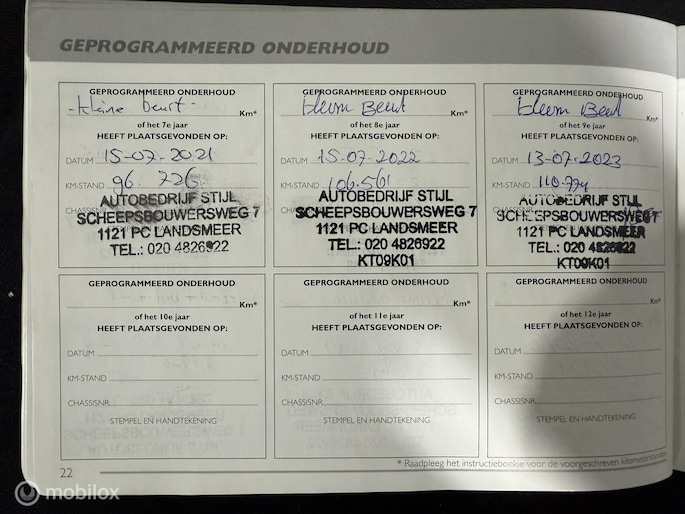 GEPROGRAMMEERD ONDERHOUD
GEPROGRAMMEERD ONDERHOUD
-kleine beurt-
Km*
of het 7e jaar
HEEFT PLAATSGEVONDEN OP:
DATUM 15-07-2021
KM-STAND 96 726
CHASSISNR.
AUTOBEDRIJF STIJL
SCHEEPSBOUWERSWEG 7
1121 PC LANDSMEER
TEL.: 020 4826922
GEPROGRAMMEERD ONDERHOUD
Beurt
Km*
of het 8e jaar
HEEFT PLAATSGEVONDEN OP:
DATUM 15-07-2022
KM-STAND 106.561
AUTOBEDRIJF STIJL
SCHEEPSBOUWERSWEG 7
1121 PC LANDSMEER
TEL.: 020 4826922
KT09K01
GEPROGRAMMEERD ONDERHOUD
Beurt
Km*
of het 9e jaar
HEEFT PLAATSGEVONDEN OP:
DATUM 13-07-2023
KM-STAND 110.774
AUTOBEDRIJF STIJL
SCHEEPSBOUWERSWEG 7
1121 PC LANDSMEER
TEL.: 020 4826922
KT09K01
GEPROGRAMMEERD ONDERHOUD
Km*
of het 10e jaar
HEEFT PLAATSGEVONDEN OP:
DATUM
KM-STAND
CHASSISNR.
STEMPEL EN HANDTEKENING
GEPROGRAMMEERD ONDERHOUD
Km*
of het 11e jaar
HEEFT PLAATSGEVONDEN OP:
DATUM
KM-STAND
CHASSISNR.
STEMPEL EN HANDTEKENING
GEPROGRAMMEERD ONDERHOUD
Km*
of het 12e jaar
HEEFT PLAATSGEVONDEN OP:
DATUM
KM-STAND
CHASSISNR.
STEMPEL EN HANDTEKENING
22
* Raadpleeg het instructieboekje voor de voorgeschreven kilometerstanden
mobilox